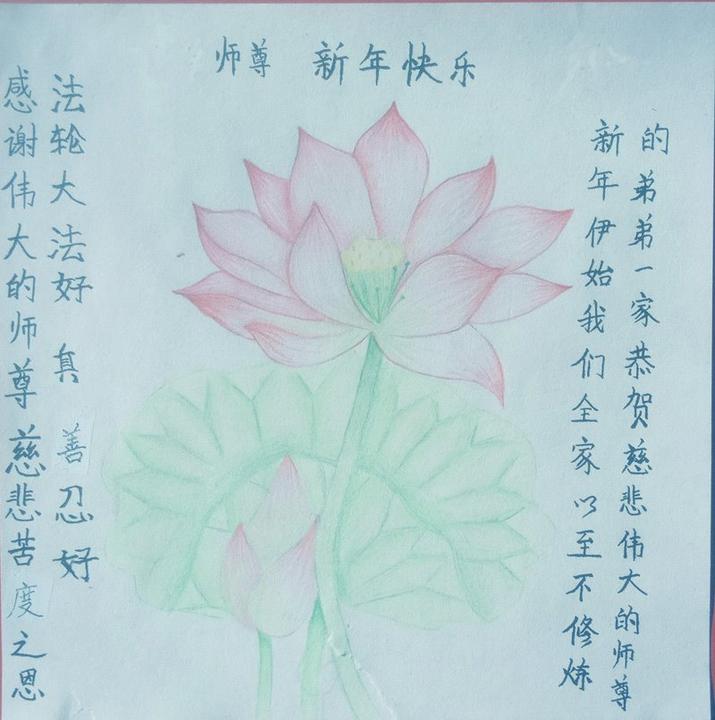 师尊 新年快乐
感谢伟大的师尊慈悲苦度之恩
法轮大法好 真 善 忍 好
新年伊始我们全家以至不修炼
的弟弟一家恭贺慈悲伟大的师尊